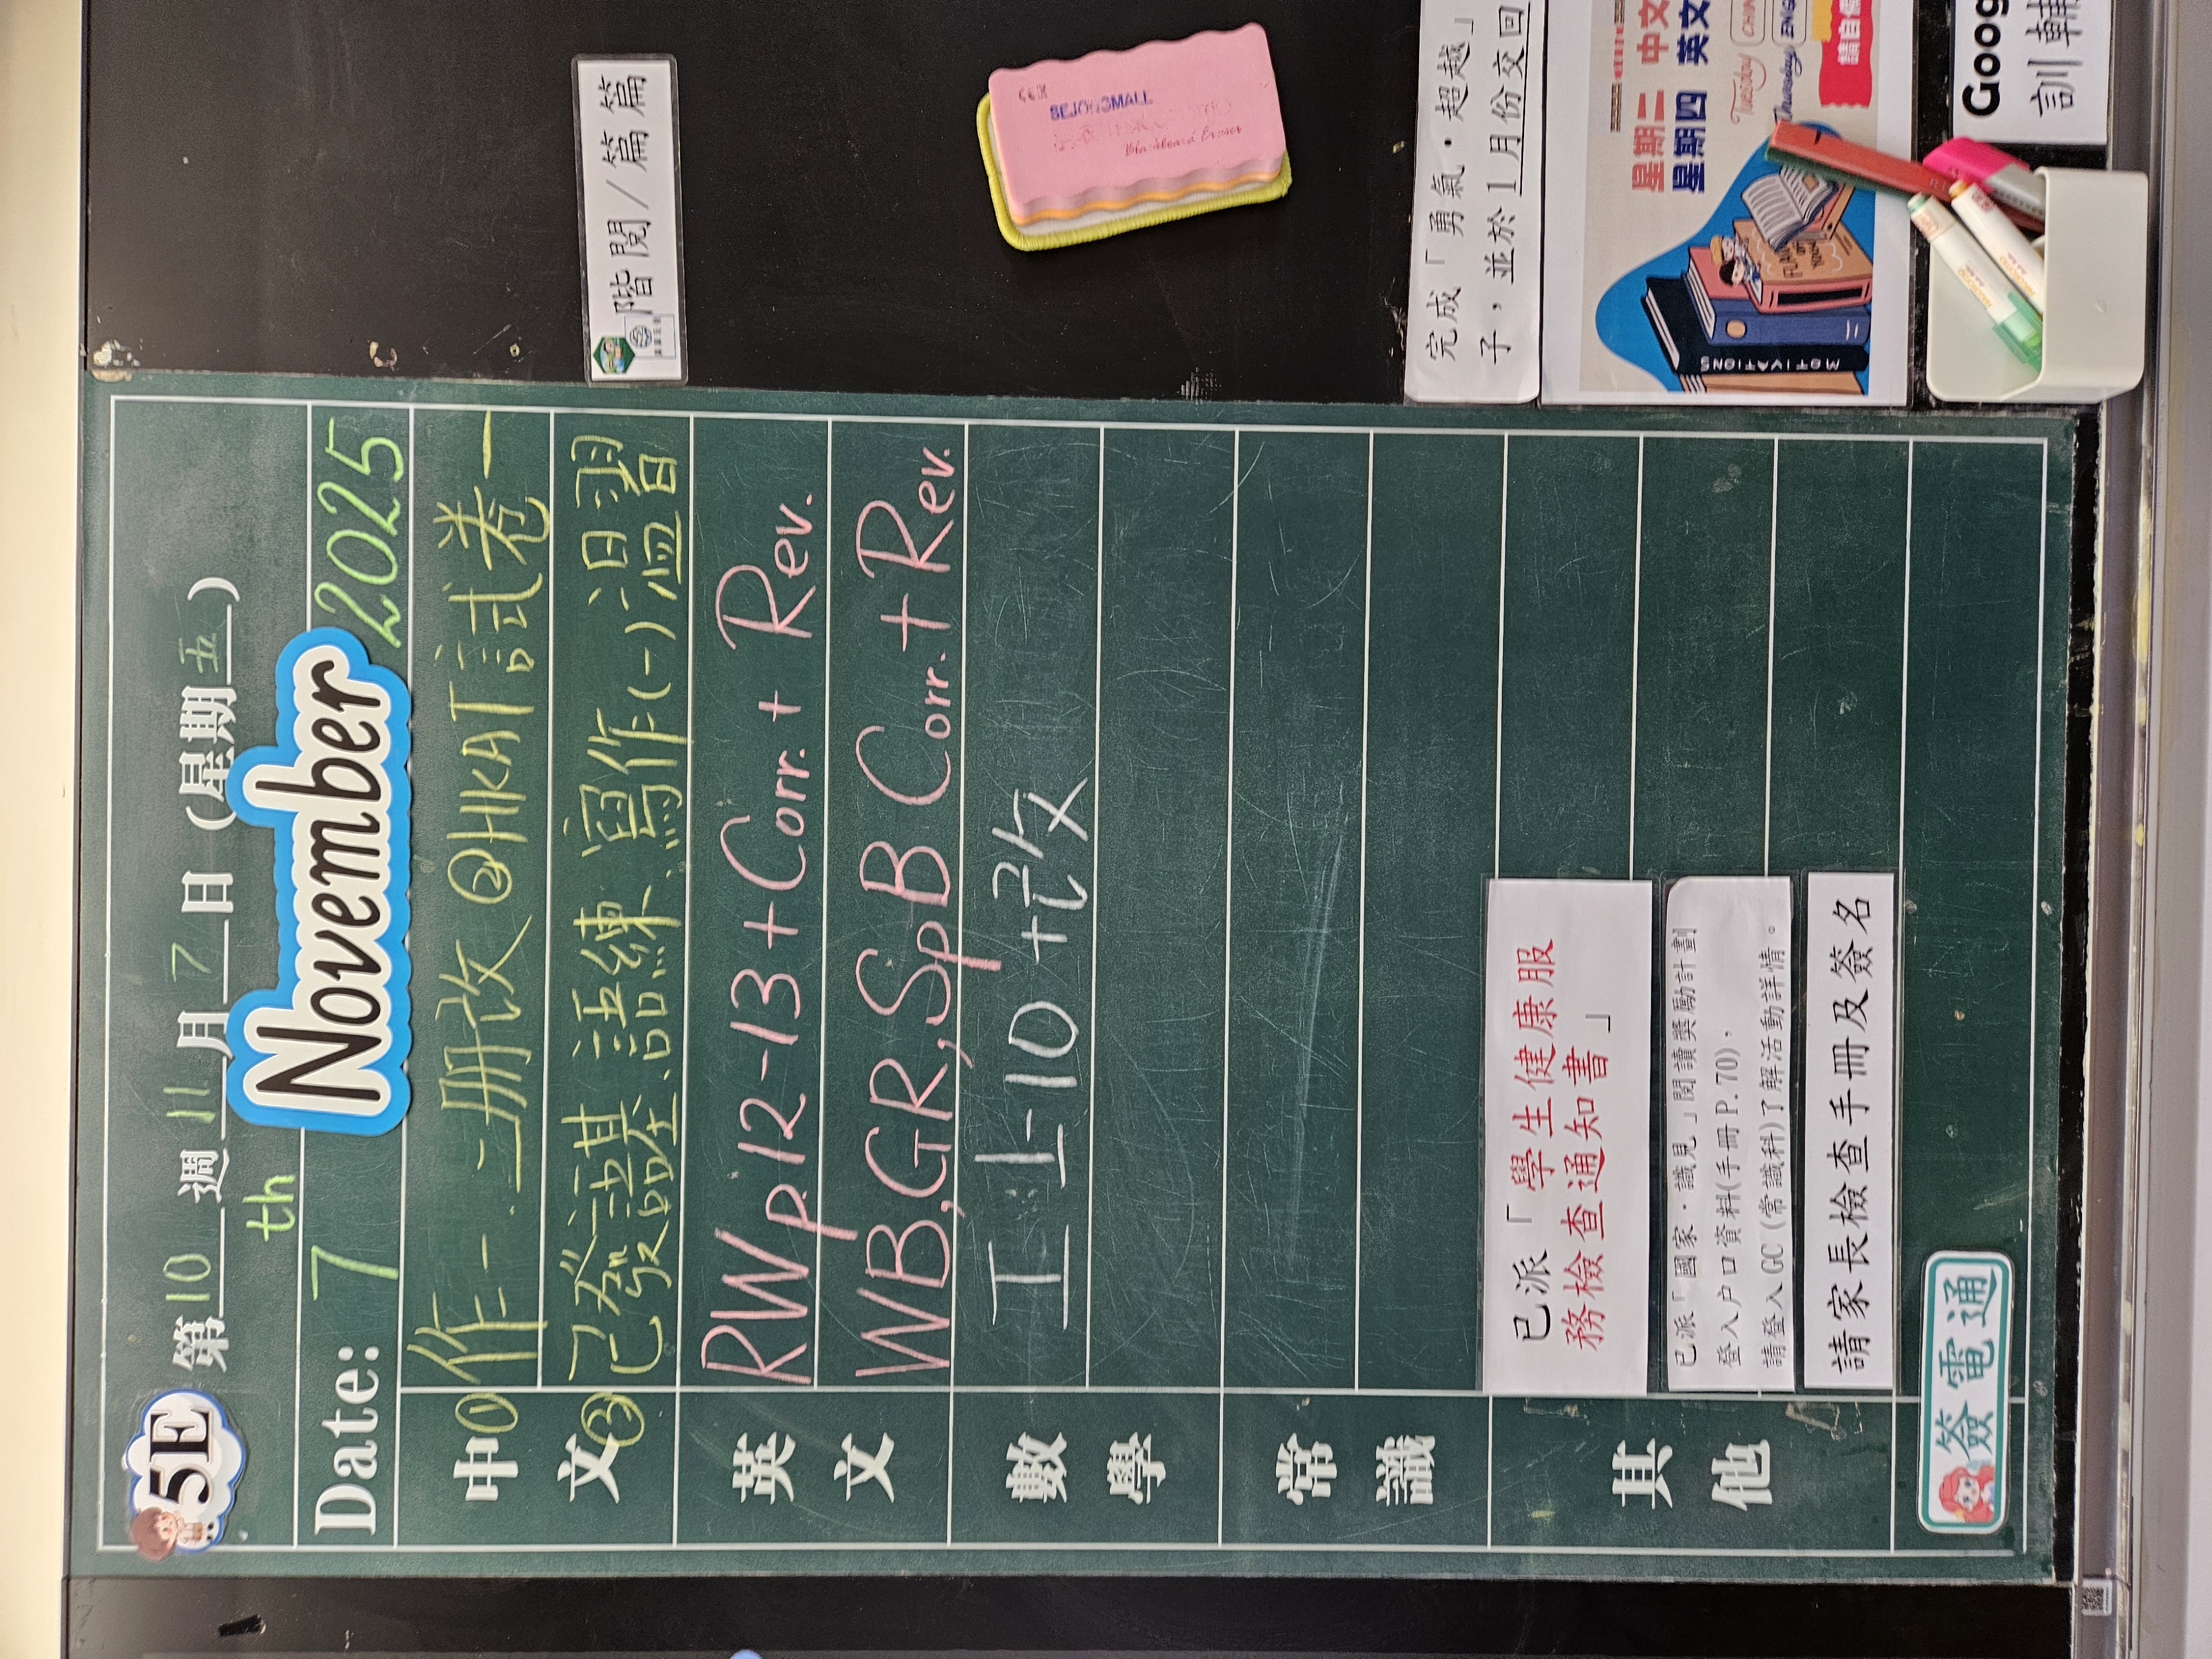 5E 第 10 週 11 月 7 日 (星期 五 )
Date: 7th November 2025
中文
① 作一.二冊改 ②@HKAT試卷一
③ 已發謹基.語練.寫作(一)溫習
英文
RWp.12-13 + Corr. + Rev.
WB, GR, SpB Corr. + Rev.
數學
工1-10 + 改
常識
其他
已派「學生健康服
務檢查通知書」
已派「國家．識見」閱讀獎勵計劃
登入户口資料(手冊P.70)，
請登入GC (常識科)了解活動詳情。
請家長檢查手冊及簽名
簽電通
階閱/篇篇
SEJONGMALL
Blackboard Eraser
完成「勇氣．超越」
子，並於1月份交回
星期二 中文
星期四 英文
Tuesday
Thursday
MOTIVATIONS
Goog
訓輔